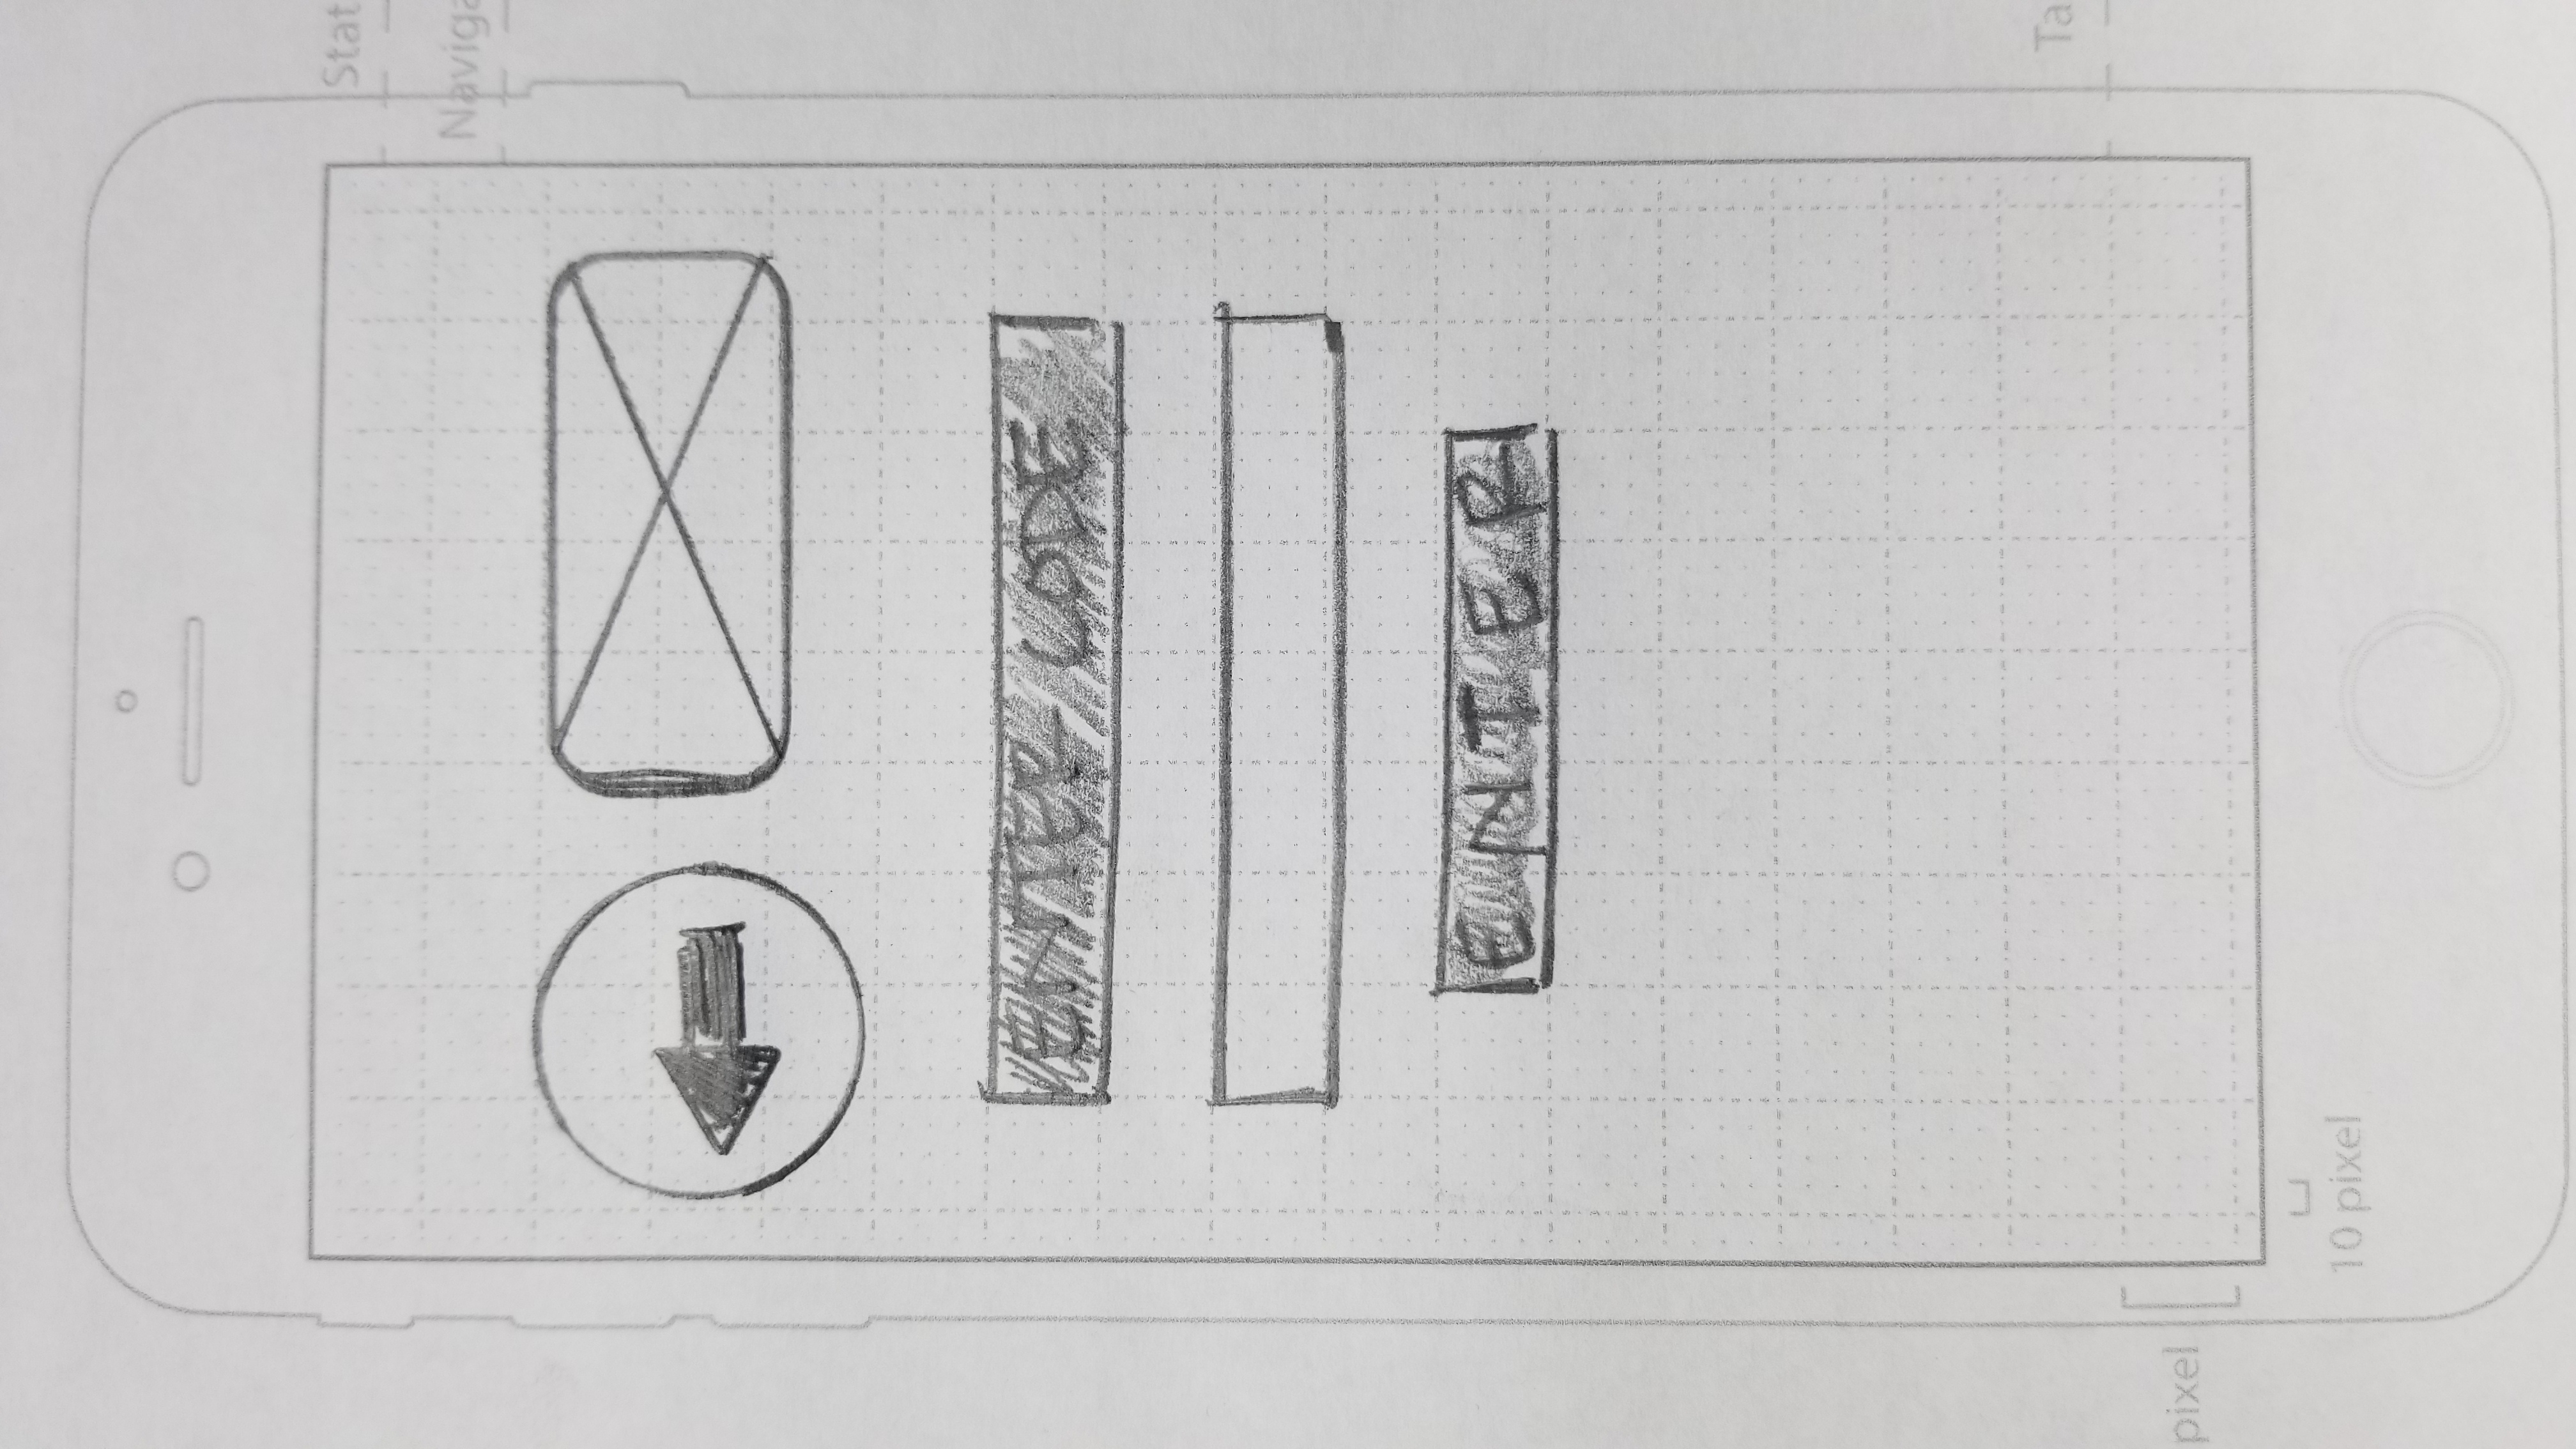 Stat
Naviga
ENTER CODE
ENTER
Ta
pixel
10 pixel